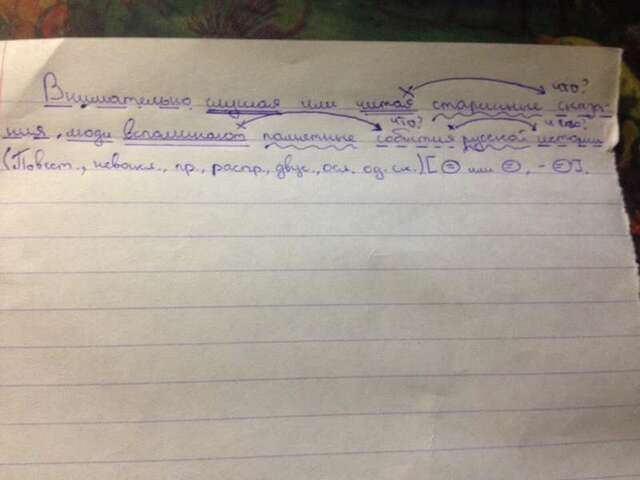 что?
Внимательно слушая или читая старинные сказа-
что? чего?
ния, люди вспоминают памятные события русской истории.
(Повест., невоскл., пр., распр., двус., осл. од. ск.) [⊖ или ⊖, - ⊜].